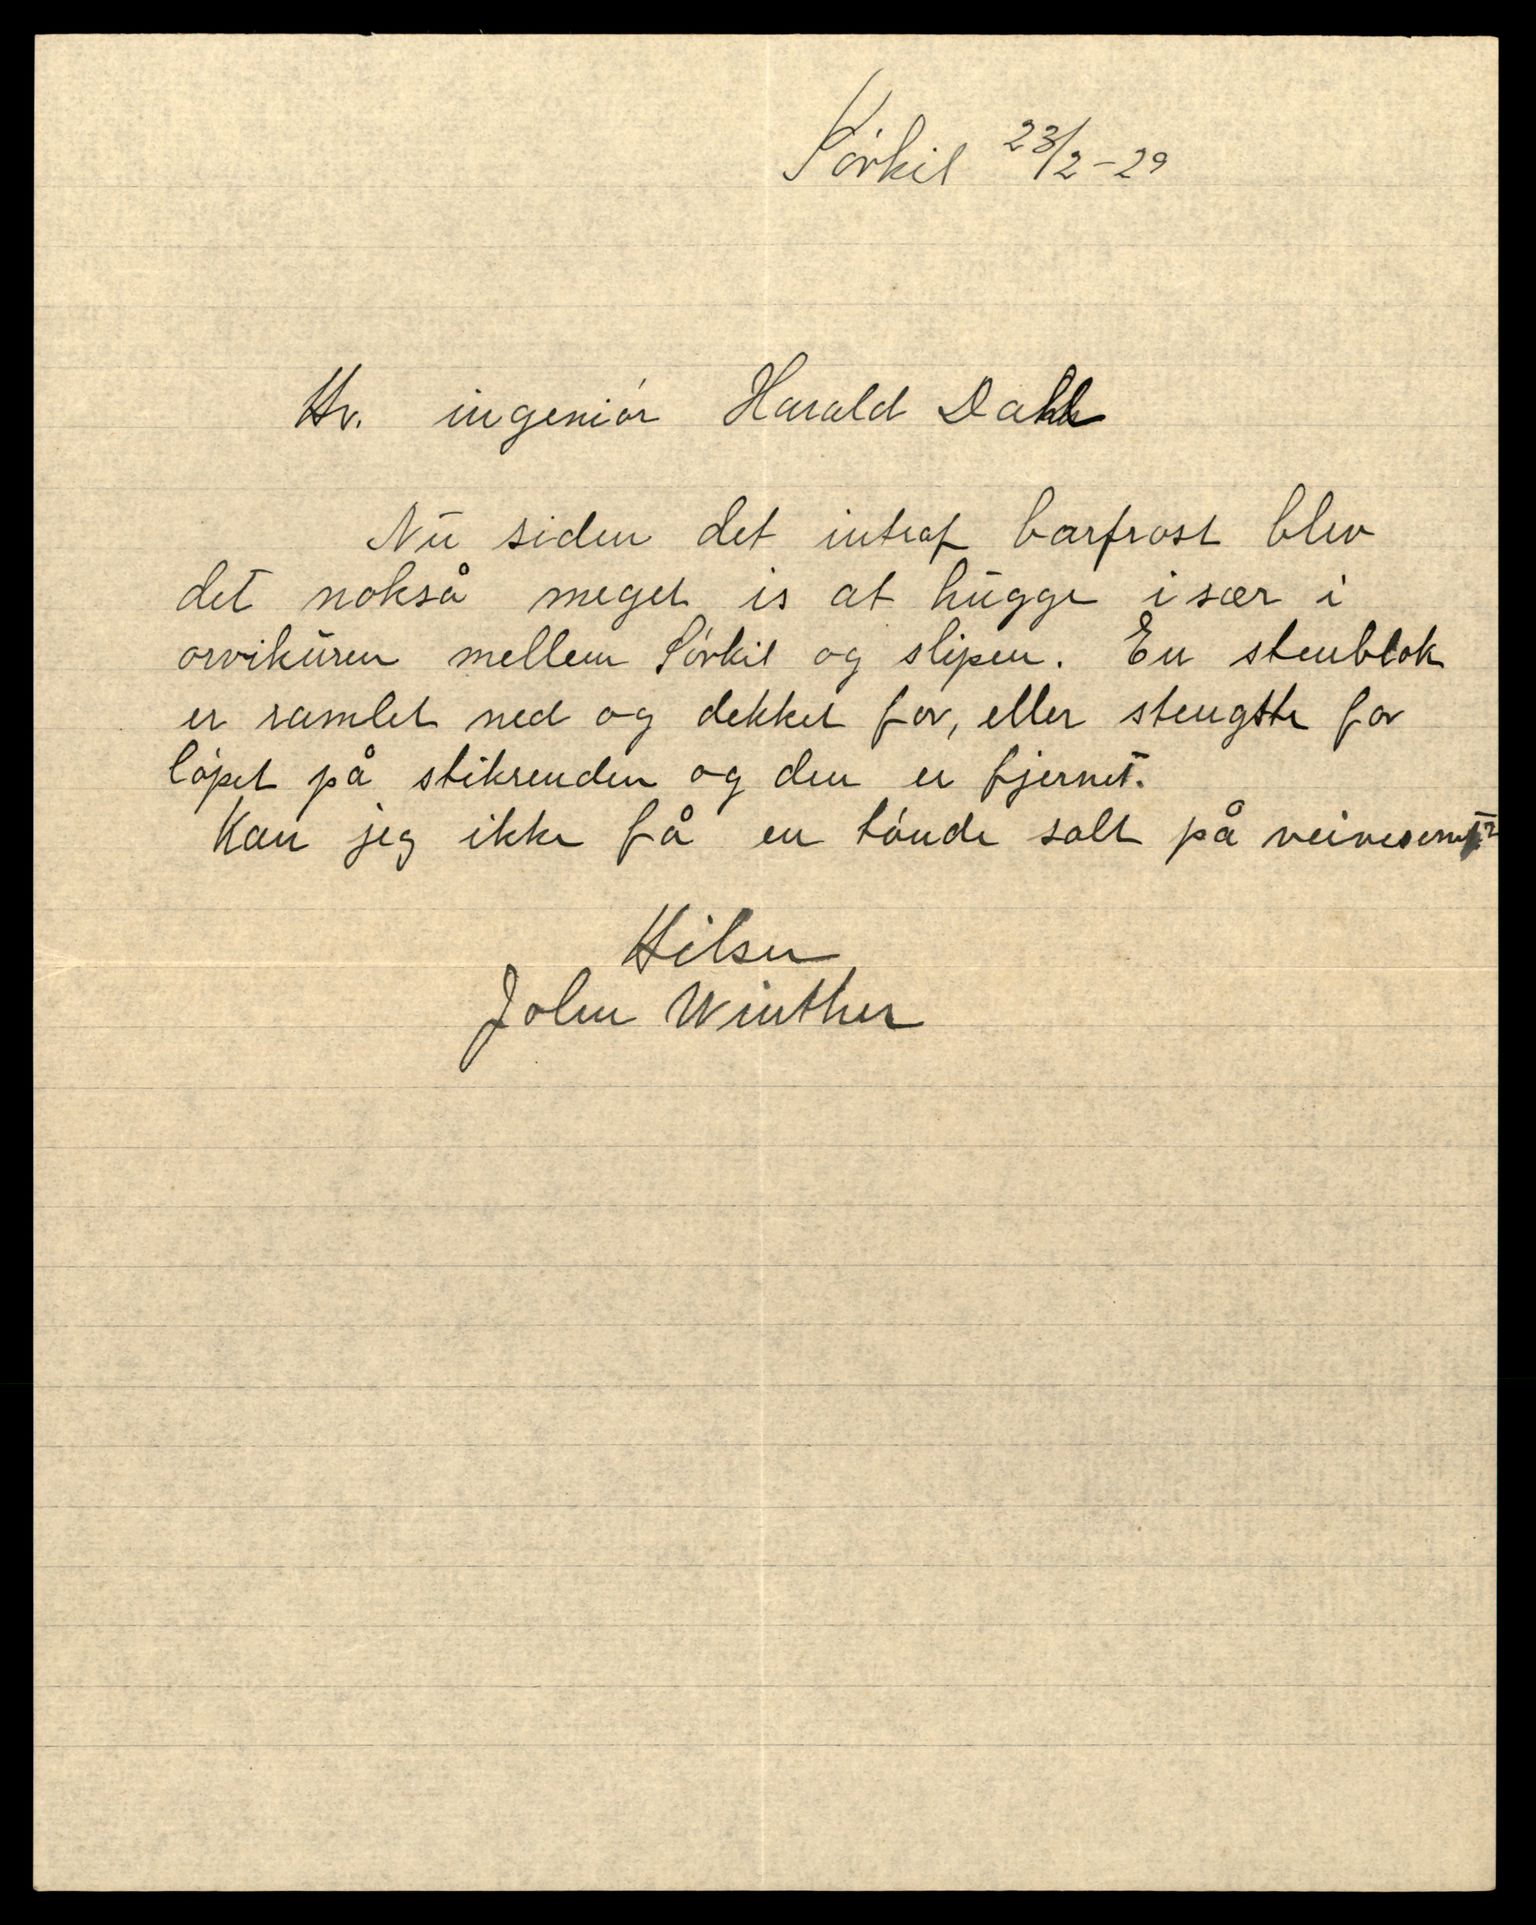 Sörkil 23/2-29
Hr. ingeniór Harald Dahl
Nu siden det intraf barfrost blev
det nokså meget is at hugge især i
orvikuren mellem Sörkil og slipen. En stenblok
er ramlet ned og dekket for, eller stengste for
löpet på stikrenden og den er fjernet.
Kan jeg ikke få en tónde salt på veivesenet?
Hilsen
John Winther